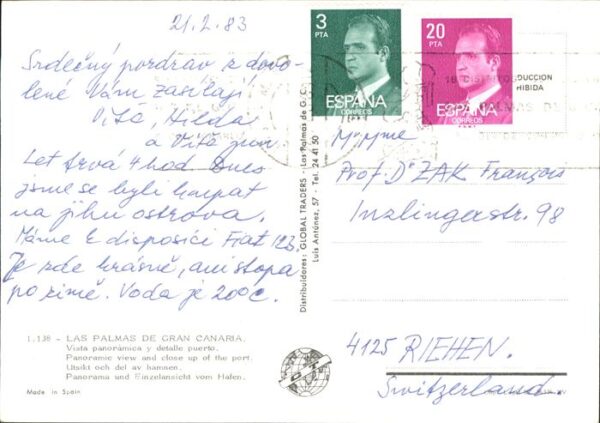 21.2.83
Srdečný pozdrav z dovo-
lené Vám zasílají
Víťa, Hilda
a Víťa jun.
Let trvá 4 hod. Dnes
jsme se byli koupat
na jihu ostrova.
Máme k disposici Fiat
Je zde krásně, ani stopa
po zimě. Voda je 20°C.
1.138 - LAS PALMAS DE GRAN CANARIA.
Vista panorámica y detalle puerto.
Panoramic view and close up of the port.
Utsikt och del av hamnen.
Panorama und Einzelansicht vom Hafen.
Made in Spain
Distribuidores: GLOBAL TRADERS - Las Palmas de G. C.
Luis Antúnez, 57 - Tel. 24 41 50
3
PTA
ESPAÑA
CORREOS
20
PTA
ESPAÑA
CORREOS
DUCCION
HIBIDA
Mr+Mme
Prof. Dr ZAK François
Inzlingerstr. 98
4125 RIEHEN.
Switzerland.